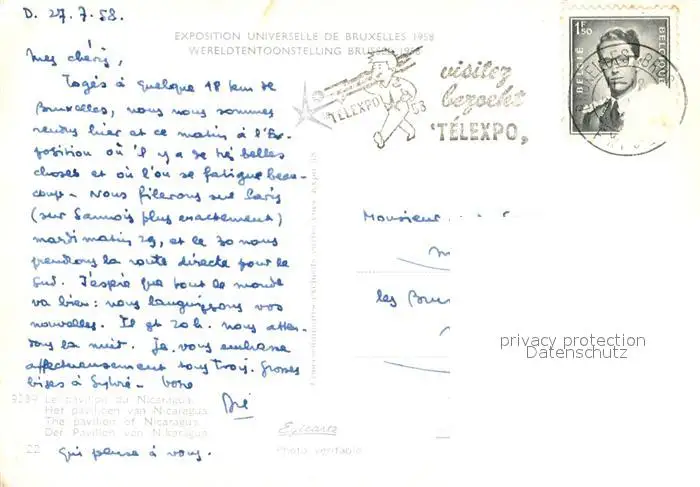 D. 27.7.58.
EXPOSITION UNIVERSELLE DE BRUXELLES 1958
WERELDTENTOONSTELLING BRUSSEL 1958
Mes chéris,
Logés à quelque 18 km de
Bruxelles, nous nous sommes
rendus hier et ce matin à l'Ex-
position où il y a de très belles
choses et où l'on se fatigue beau-
coup - Nous filerons sur Paris
(sur Sannois plus exactement)
mardi matin 29, et le 30 nous
prendrons la route directe pour le
Sud. J'espère que tout le monde
va bien : nous languissons vos
nouvelles. Il est 20h. nous atten-
dons la nuit. Je vous embrasse
affectueusement tous trois. Grosses
bises à Sylvie - Votre
Dié
qui pense à vous.
9289 Le pavillon du Nicaragua.
Het paviljoen van Nicaragua
The pavilion of Nicaragua.
Der Pavillon van Nikaragua
22
Photo véritable
expo 58
TÉLEXPO 58
visitez
bezoekt
TÉLEXPO,
1F50
BELGIË
BELGIQUE
Monsieur
les
privacy protection
Datenschutz